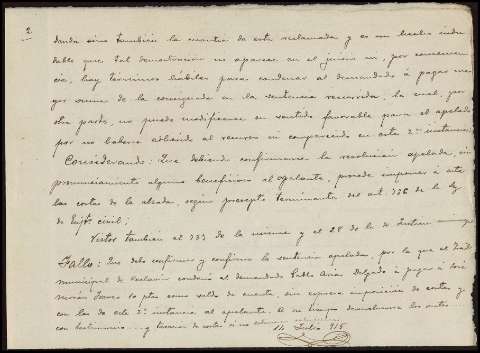 2
deuda sino también la cuantía de esta reclamada y es un hecho indu
dable que tal demostración no aparece en el juicio ni, por consecuen
cia, hay términos hábiles para condenar al demandado á pagar ma
yor suma de la consignada en la sentencia recurrida, la cual, por
otra parte, no puede modificarse en sentido favorable para el apelado
por no haberse adherido al recurso ni comparecido en esta 2ª instancia
Considerando: Que debiendo confirmarse la resolución apelada, sin
pronunciamiento alguno beneficioso al apelante, procede imponer á este
las costas de la alzada, según precepto terminante del art. 736 de la ley
de Enjto civil;
Vistos también el 733 de la misma y el 28 de la de Justicia
Fallo: Que debo confirmar y confirmo la sentencia apelada, por la que el Tral
municipal de condenó al demandado Pablo Arias Delgado á pagar á José
ptas como saldo de cuenta, sin expresa imposición de costas y
con las de esta 2ª instancia al apelante. A su tiempo devuélvanse los autos
con testimonio y tasación de costas si
14 Julio 915